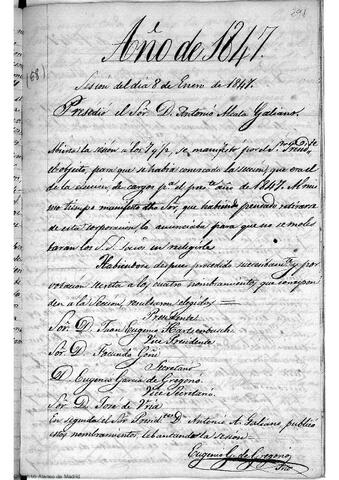 291
Año de 1847.
(68)
Sesion del dia 8 de Enero de 1847.
Presidió el Sor. D. Antonio Alcala Galiano.
Abierta la sesion a las 7 y ½, se manifestó por el Sor. Presidte
el objeto, para que se habia convocado la seccion que era el
de la eleccion de cargos pa. el preste. año de 1847. Al mis
mo tiempo manifestó dho Sr. que habiendo pensado retirarse
de esta corporacion lo anunciaba para que no se moles
taran los S.S. socios en reelegirle
Habiendose despues procedido por
votacion secreta a los cuatro nombramientos que correspon
den a la Seccion, resultaron elegidos =
Presidente
Sor. D. Juan Eugenio Hartzenbusch.
Vice Presidente
Sor. D. Facundo Goñi
Secretario
D. Eugenio Garcia de Gregorio.
Vice Secretario.
Sor. D. José de Uria
En seguida el Sor Presidte. Dn Antonio A. Galiano, publicó
estos nombramientos, lebantando la sesion
Eugenio G. de Gregorio
Srio
Ateneo de Madrid